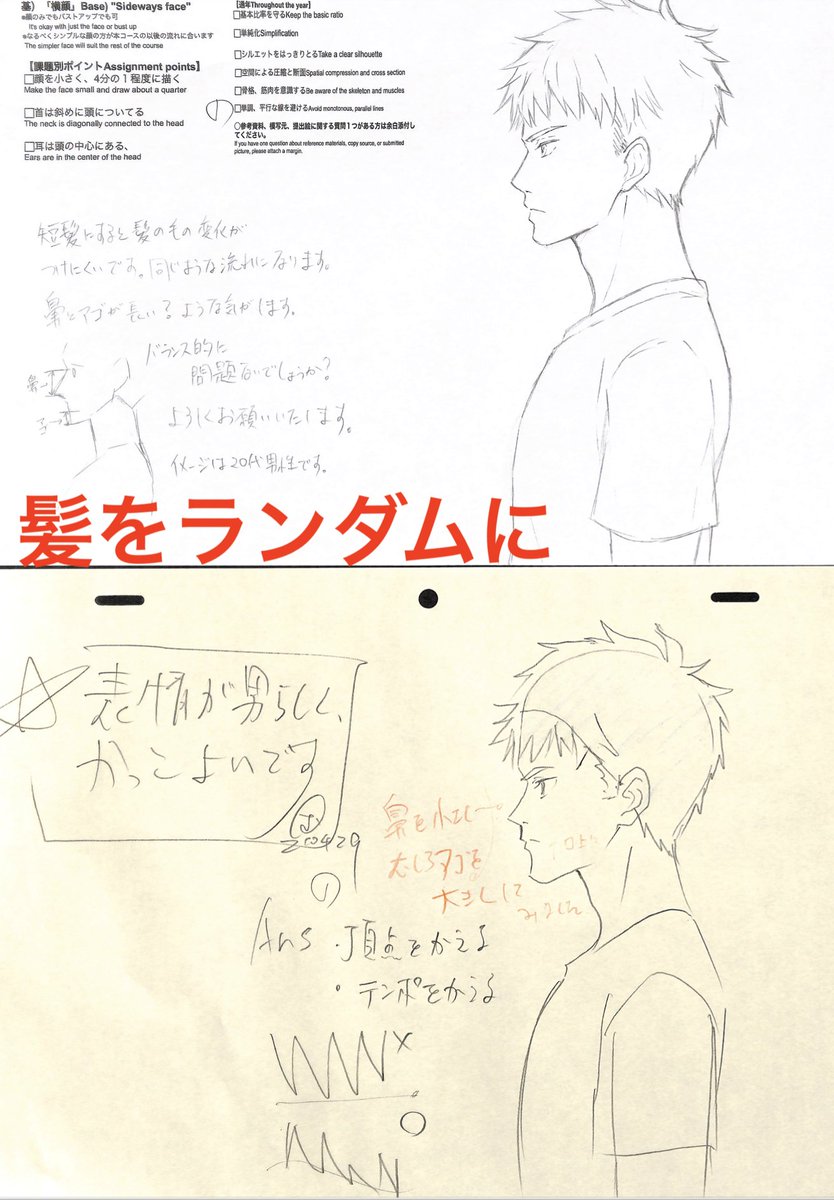 基）「横顔」Base) "Sideways face"
※顔のみでもバストアップでも可
It's okay with just the face or bust up
※なるべくシンプルな顔の方が本コースの以後の流れに合います
The simpler face will suit the rest of the course
【課題別ポイントAssignment points】
□顔を小さく、4分の1程度に描く
Make the face small and draw about a quarter
□首は斜めに頭についてる
The neck is diagonally connected to the head
□耳は頭の中心にある、
Ears are in the center of the head
【通年Throughout the year】
□基本比率を守るKeep the basic ratio
□単純化Simplification
□シルエットをはっきりとるTake a clear silhouette
□空間による圧縮と断面Spatial compression and cross section
□骨格、筋肉を意識するBe aware of the skeleton and muscles
□単調、平行な線を避けるAvoid monotonous, parallel lines
○参考資料、模写元、提出絵に関する質問1つがある方は余白添付し
てください。
If you have one question about reference materials, copy source, or submitted
picture, please attach a margin.
短髪にすると髪の毛の変化が
つけにくいです。同じような流れになります。
鼻とアゴが長いような気がします。
バランス的に
問題ないでしょうか?
よろしくお願いいたします。
イメージは20代男性です。
鼻
髪をランダムに
表情が男らしく、
かっこよいです
鼻を小さく
アゴを
大きくして
Ans ・頂点をかえる
・テンポをかえる